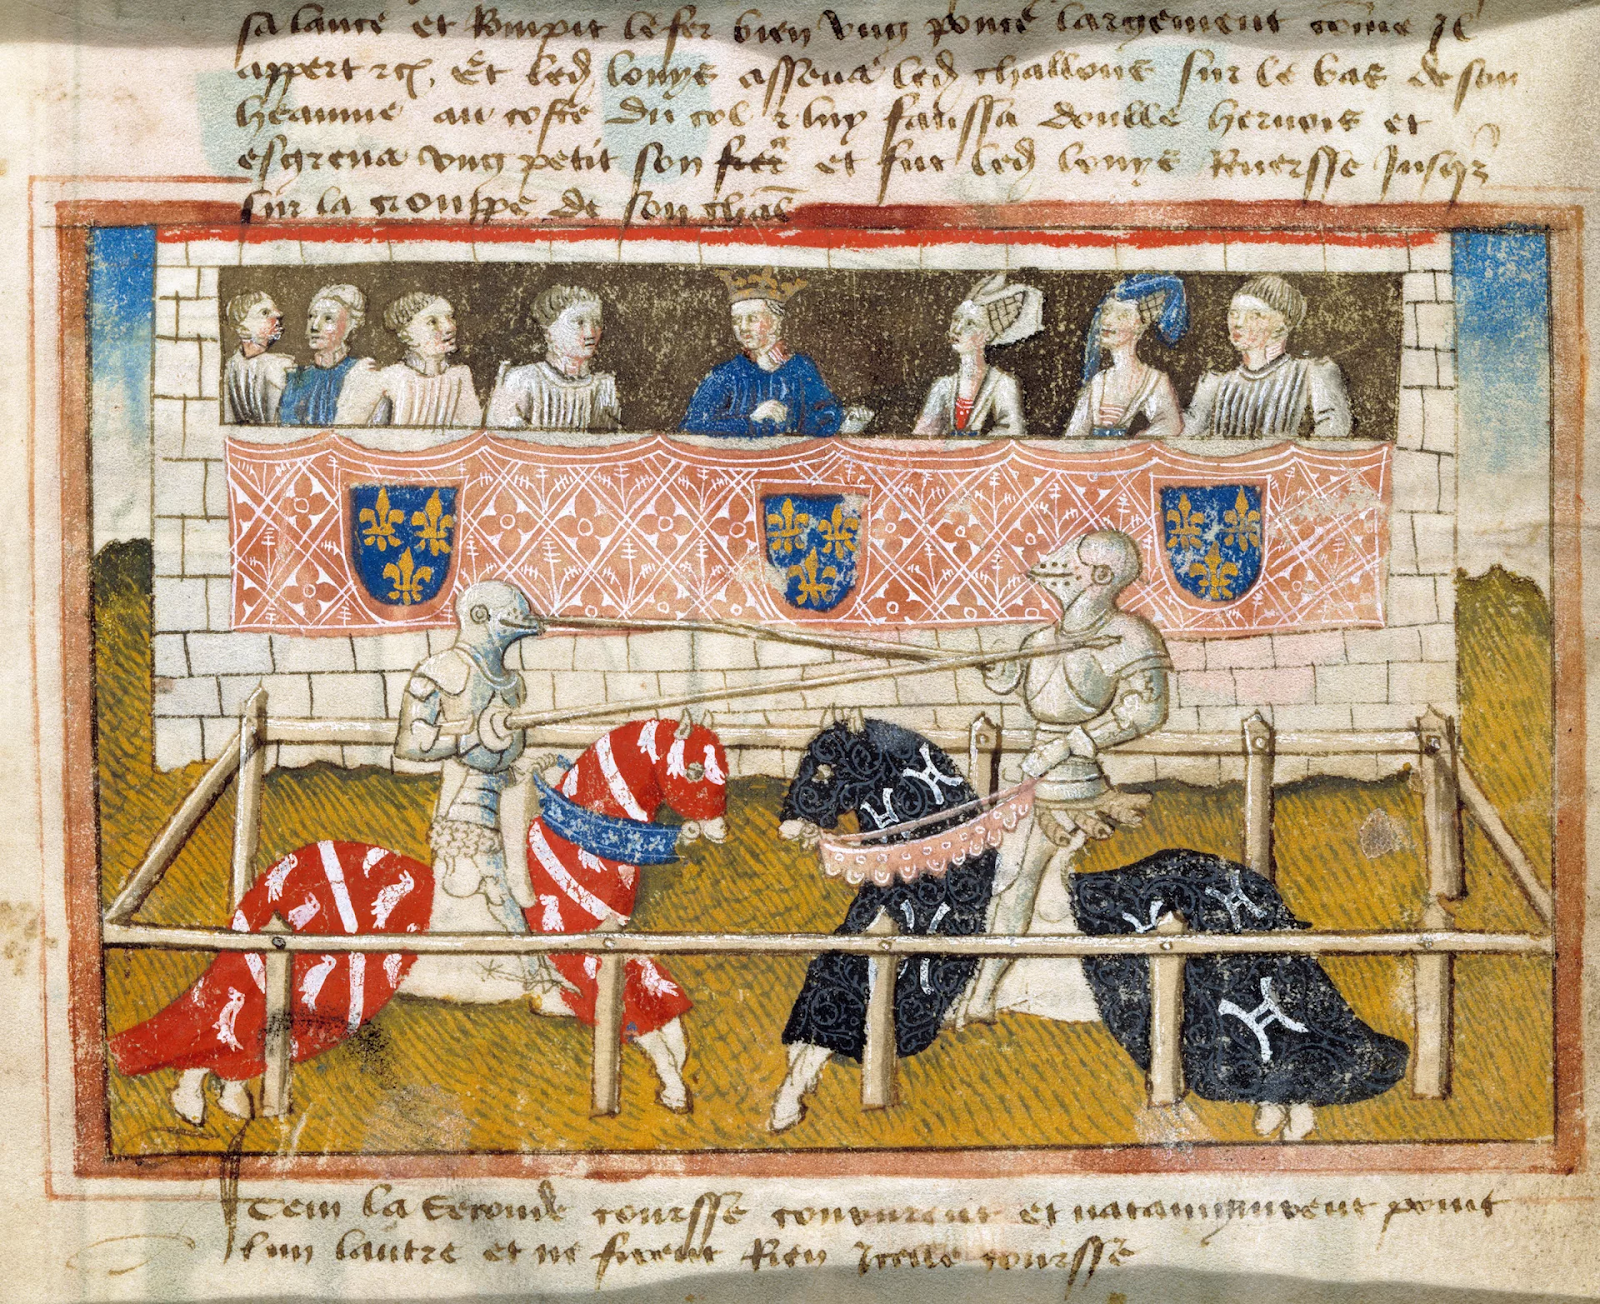 sa lance et Rompit le fer bien ung poulce largement come Il
appert etc. Et led louys assena led challons sur le bas de son
heaume au coste du col et luy faussa doulle hernois et
esgrena ung petit son fer et fut led louys Reversse Jusqz
sur la crouppe de son chal
Item la Seconde coursse coururent et nataingnirent point
lun lautre et ne firent Rien Icelle coursse